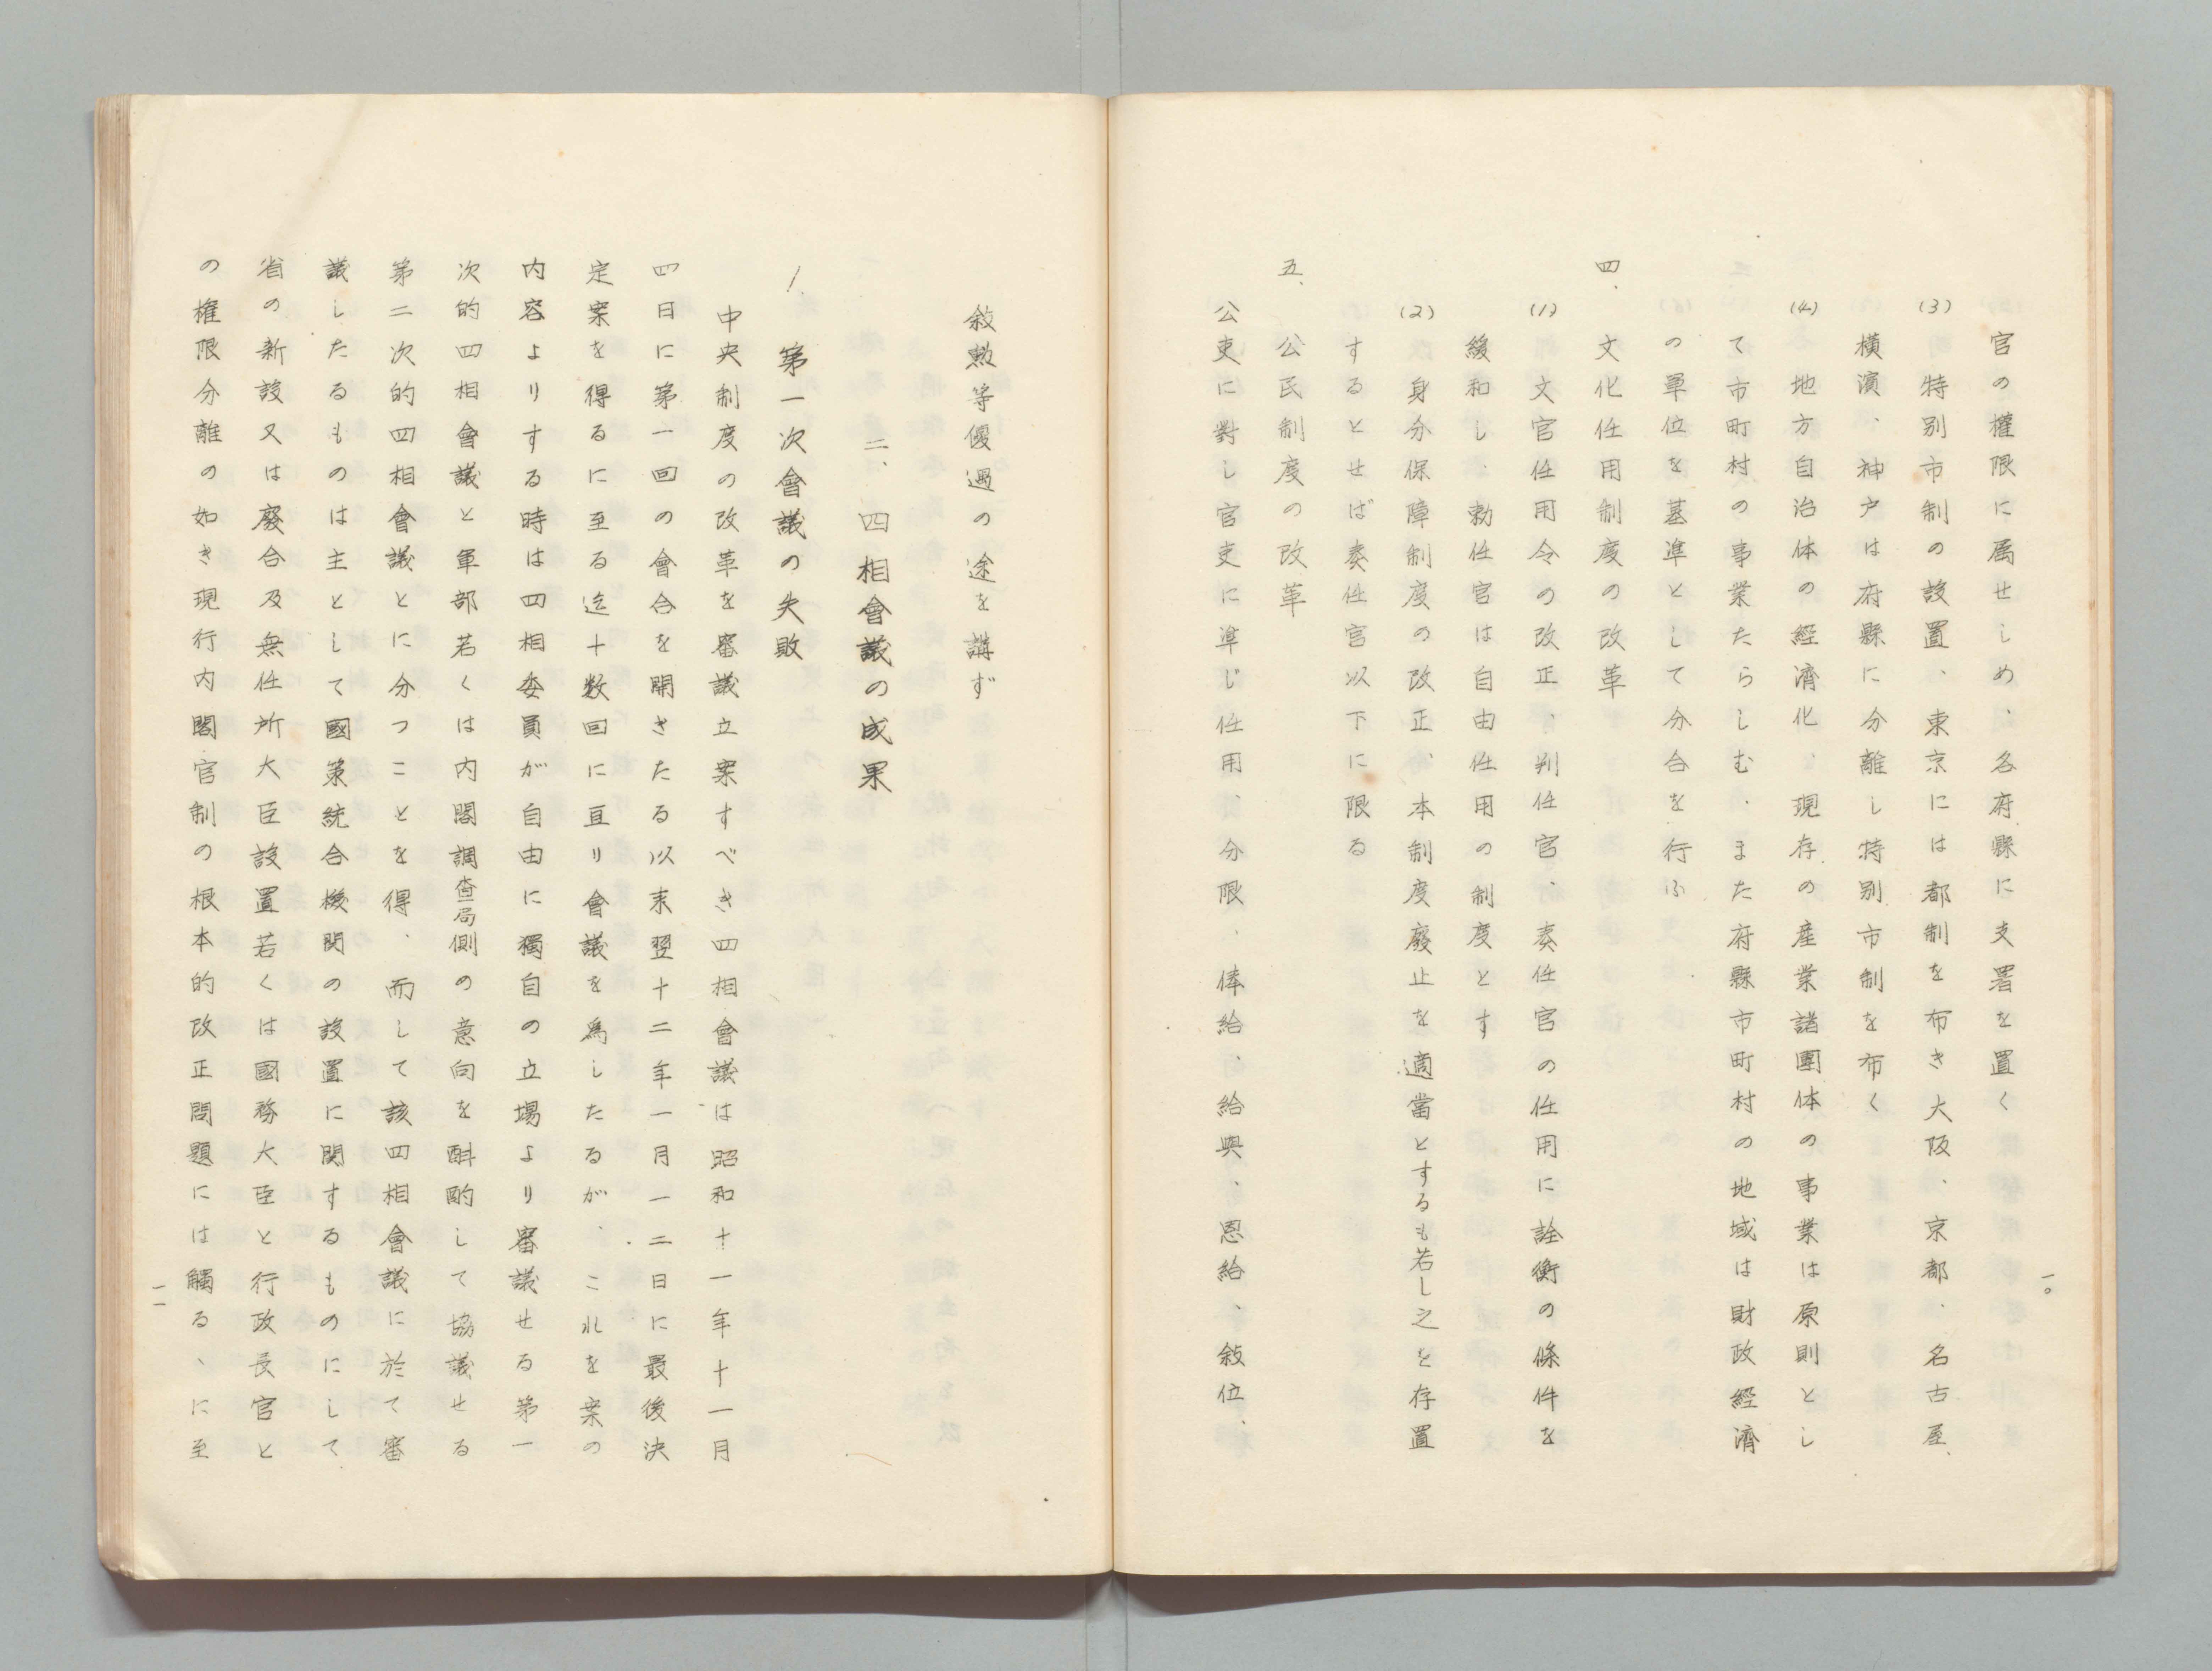 一〇
官の權限に屬せしめ、各府縣に支署を置く
(3) 特別市制の設置、東京には都制を布き大阪、京都、名古屋、
横濱、神戸は府縣に分離し特別市制を布く
(4) 地方自治体の經濟化、現存の産業諸團体の事業は原則とし
て市町村の事業たらしむ、また府縣市町村の地域は財政經濟
の單位を基準として分合を行ふ
四、文化任用制度の改革
(1) 文官任用令の改正、判任官、奏任官の任用に詮衡の條件を
緩和し、勅任官は自由任用の制度とす
(2) 身分保障制度の改正、本制度廢止を適當とするも若し之を存置
するとせば奏任官以下に限る
五、公民制度の改革
公吏に對し官吏に準じ任用、分限、俸給、給與、恩給、敍位、
敍勲等優遇の途を講ず
二、四相會議の成果
1. 第一次會議の失敗
中央制度の改革を審議立案すべき四相會議は昭和十一年十一月
四日に第一回の會合を開きたる以来翌十二年一月一二日に最後決
定案を得るに至る迄十数回に亘り會議を爲したるが、これを案の
内容よりする時は四相委員が自由に獨自の立場より審議せる第一
次的四相會議と軍部若くは内閣調査局側の意向を斟酌して協議せる
第二次的四相會議とに分つことを得、而して該四相會議に於て審
議したるものは主として國策統合機関の設置に関するものにして
省の新設又は廢合及無任所大臣設置若くは國務大臣と行政長官と
の権限分離の如き現行内閣官制の根本的改正問題には觸る、に至
一一